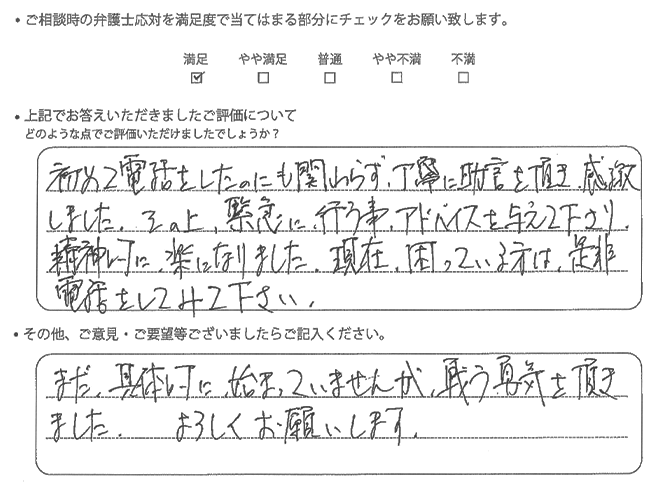 ・ご相談時の弁護士応対を満足度で当てはまる部分にチェックをお願い致します。
満足 やや満足 普通 やや不満 不満
・上記でお答えいただきましたご評価について
どのような点でご評価いただけましたでしょうか？
初めて電話をしたのにも関わらず、丁寧に助言を頂き、感激
しました。その上、緊急に、行う事、アドバイスを与えて下さり、
精神的に、楽になりました。現在、困っている方は、是非
電話をしてみて下さい。
・その他、ご意見・ご要望等ございましたらご記入ください。
まだ、具体的に、始まっていませんが、戦う勇気を頂き
ました。 よろしくお願いします。